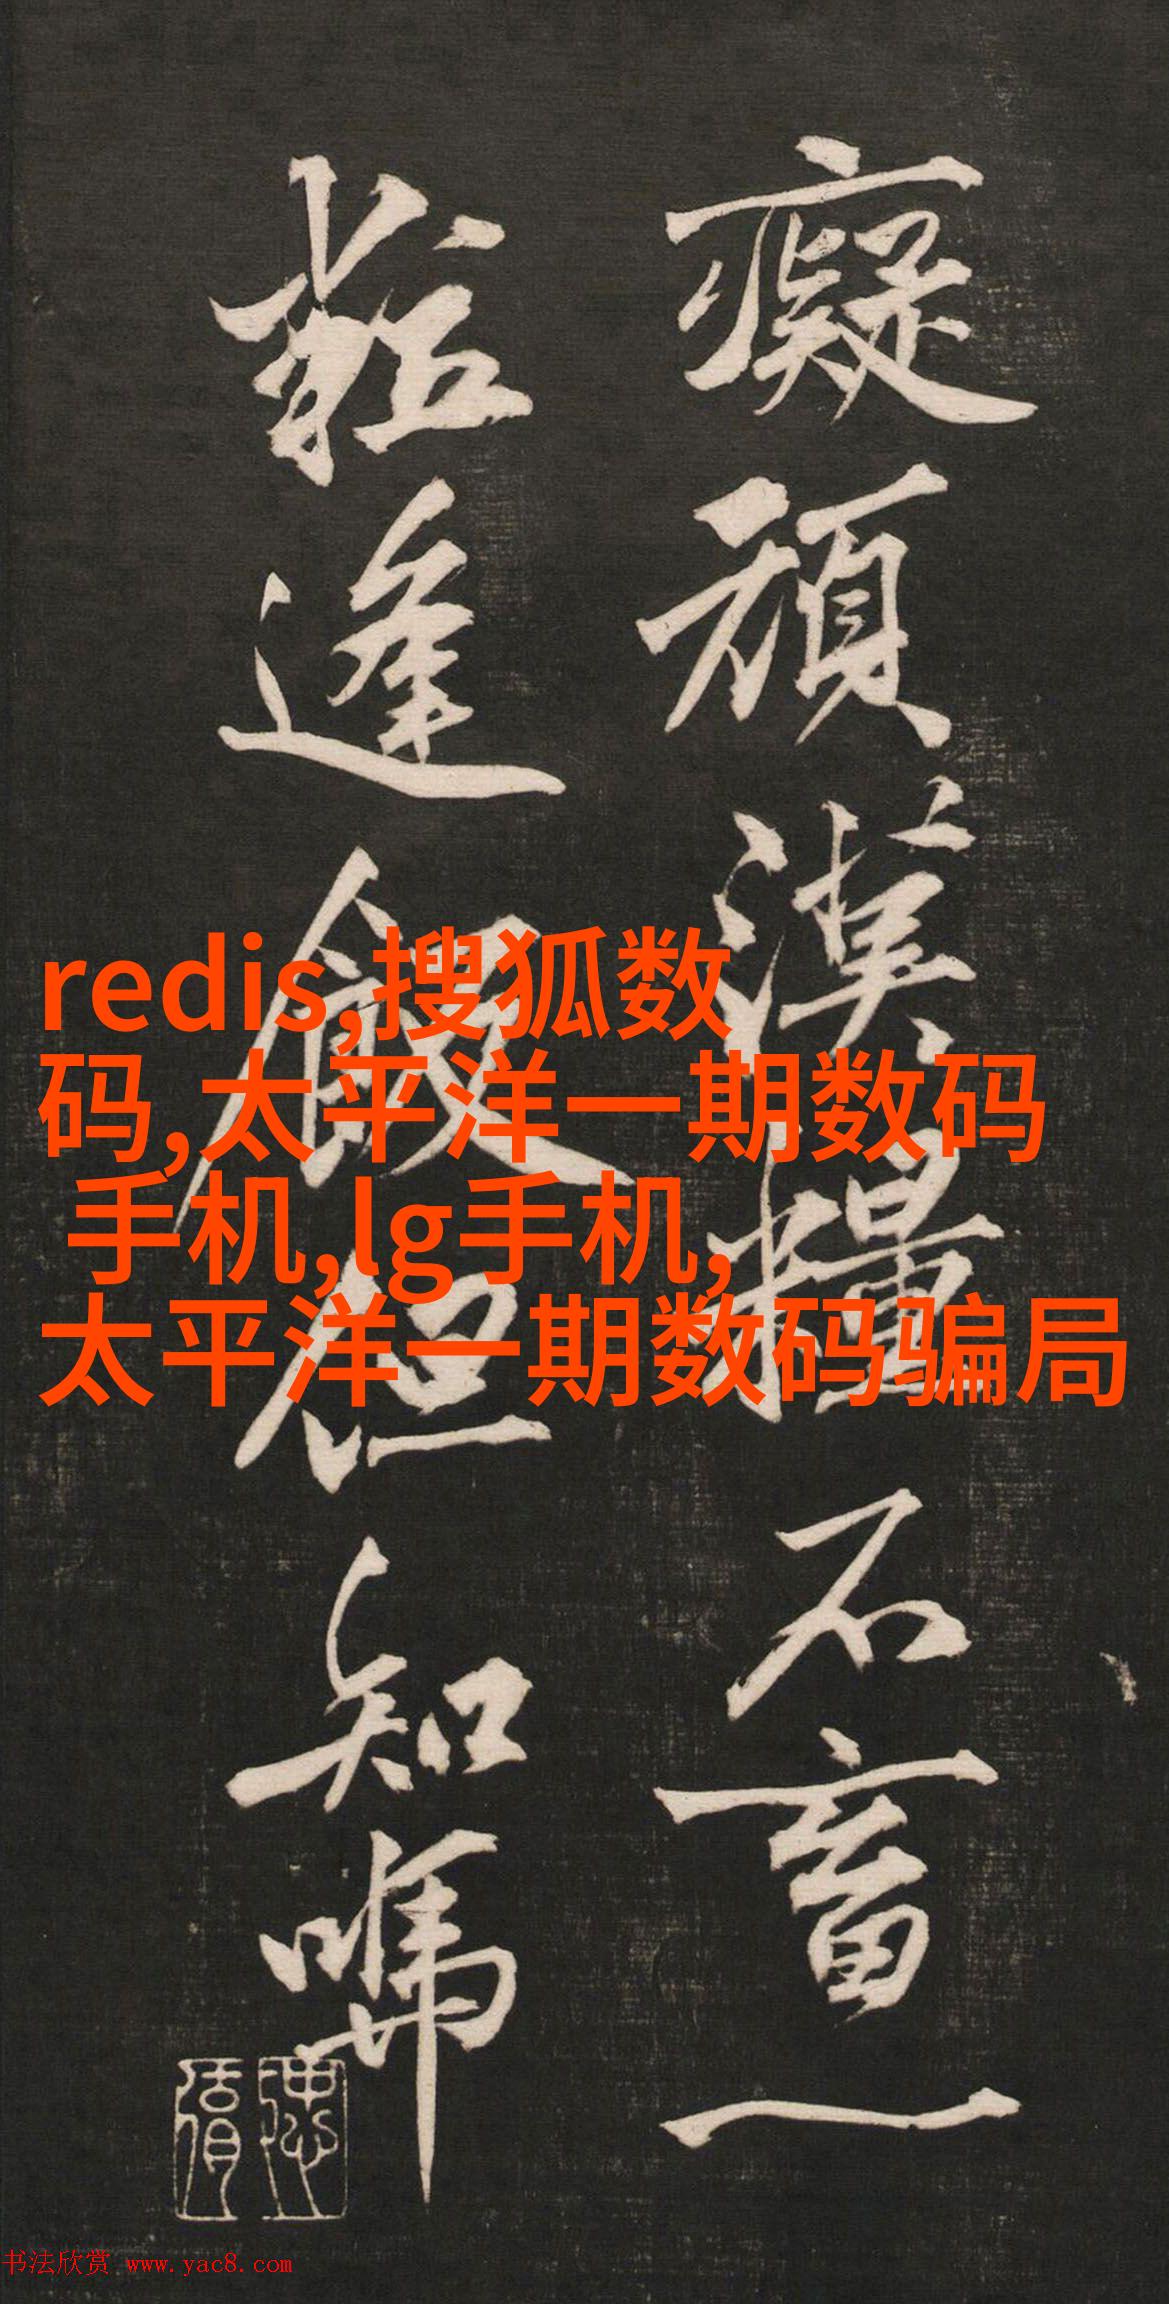 癡頑漢糧不畜一
粒逢飯但知
redis,搜狐数
码,太平洋一期数码
手机,lg手机,
太平洋一期数码骗局
书法欣赏 www.yac8.com